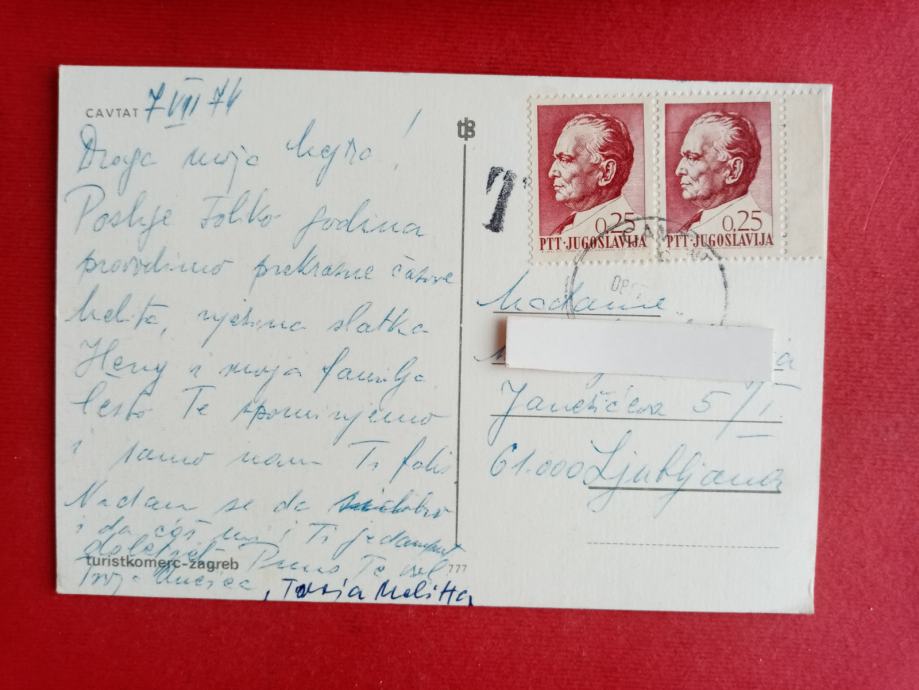 CAVTAT 7 VIII 74
Draga moja
Poslije toliko godina
provodimo prekrasne časove
Melita, njezina slatka
Heny i moja familja
često Te spominjemo
i samo nam Ti fališ
Nadam se da
i da ćeš nam i Ti jedamput
doletjet Puno Te voli
Tvoja
, Tvoja Melitta
turistkomerc-zagreb
777
T
0.25
PTT·JUGOSLAVIJA
0.25
PTT·JUGOSLAVIJA
Madame
Janežičeva 5/I
61.000 Ljubljana